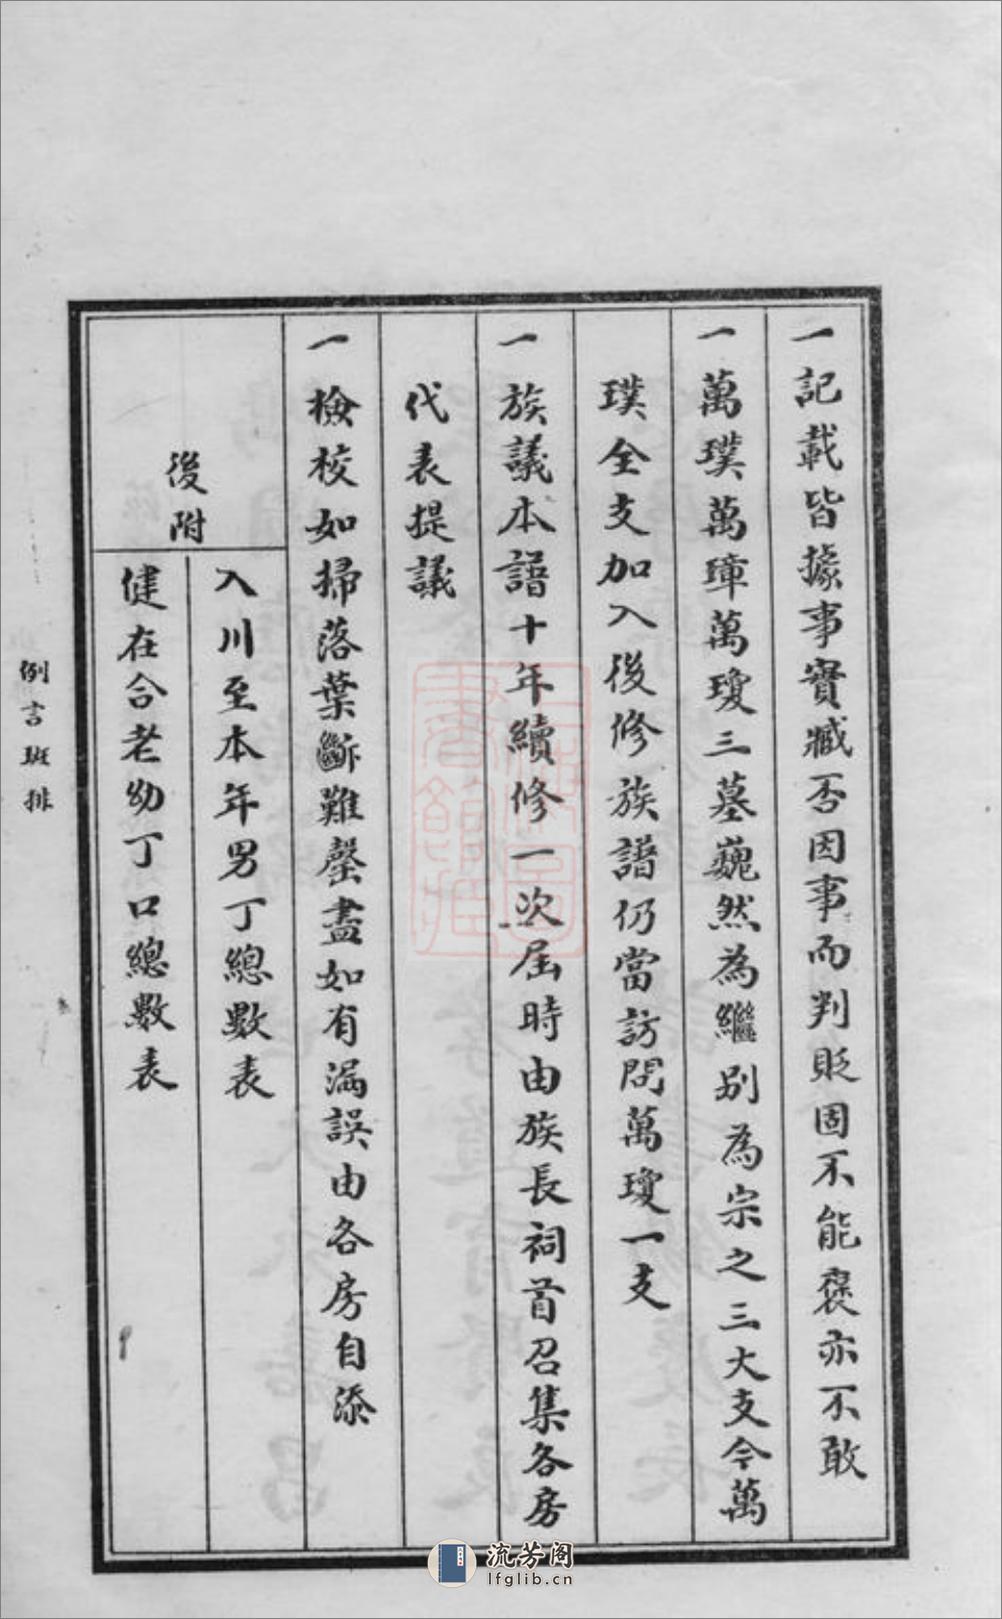 一記載皆據事實臧否因事而判貶固不能褒亦不敢
一萬璞萬璋萬瓊三墓巍然為繼别為宗之三大支今萬
璞全支加入後修族譜仍當訪問萬瓊一支
一族議本譜十年續修一次屆時由族長祠首召集各房
代表提議
一檢校如掃落葉斷難罄盡如有漏誤由各房自添
後附
入川至本年男丁總數表
健在合老幼丁口總數表
例言班排
流芳阁
lfglib.cn